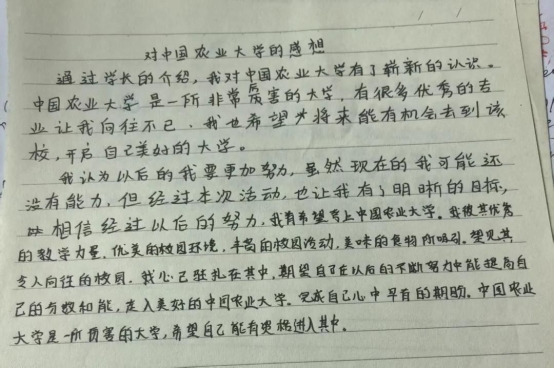 对中国农业大学的感想
通过学长的介绍，我对中国农业大学有了崭新的认识。
中国农业大学是一所非常厉害的大学，有很多优秀的专
业让我向往不已，我也希望将来能有机会去到该
校，开启自己美好的大学。
我认为以后的我要更加努力，虽然现在的我可能还
没有能力，但经过本次活动，也让我有了明晰的目标，
相信经过以后的努力，我有希望考上中国农业大学。我被其优秀
的教学力量，优美的校园环境，丰富的校园活动，美味的食物所吸引。望见其
令人向往的校园，我心已驻扎在其中，期望自己在以后的不断努力中能提高自
己的分数和能，走入美好的中国农业大学。完成自己心中早有的期盼。中国农业
大学是一所厉害的大学，希望自己能有资格进入其中。